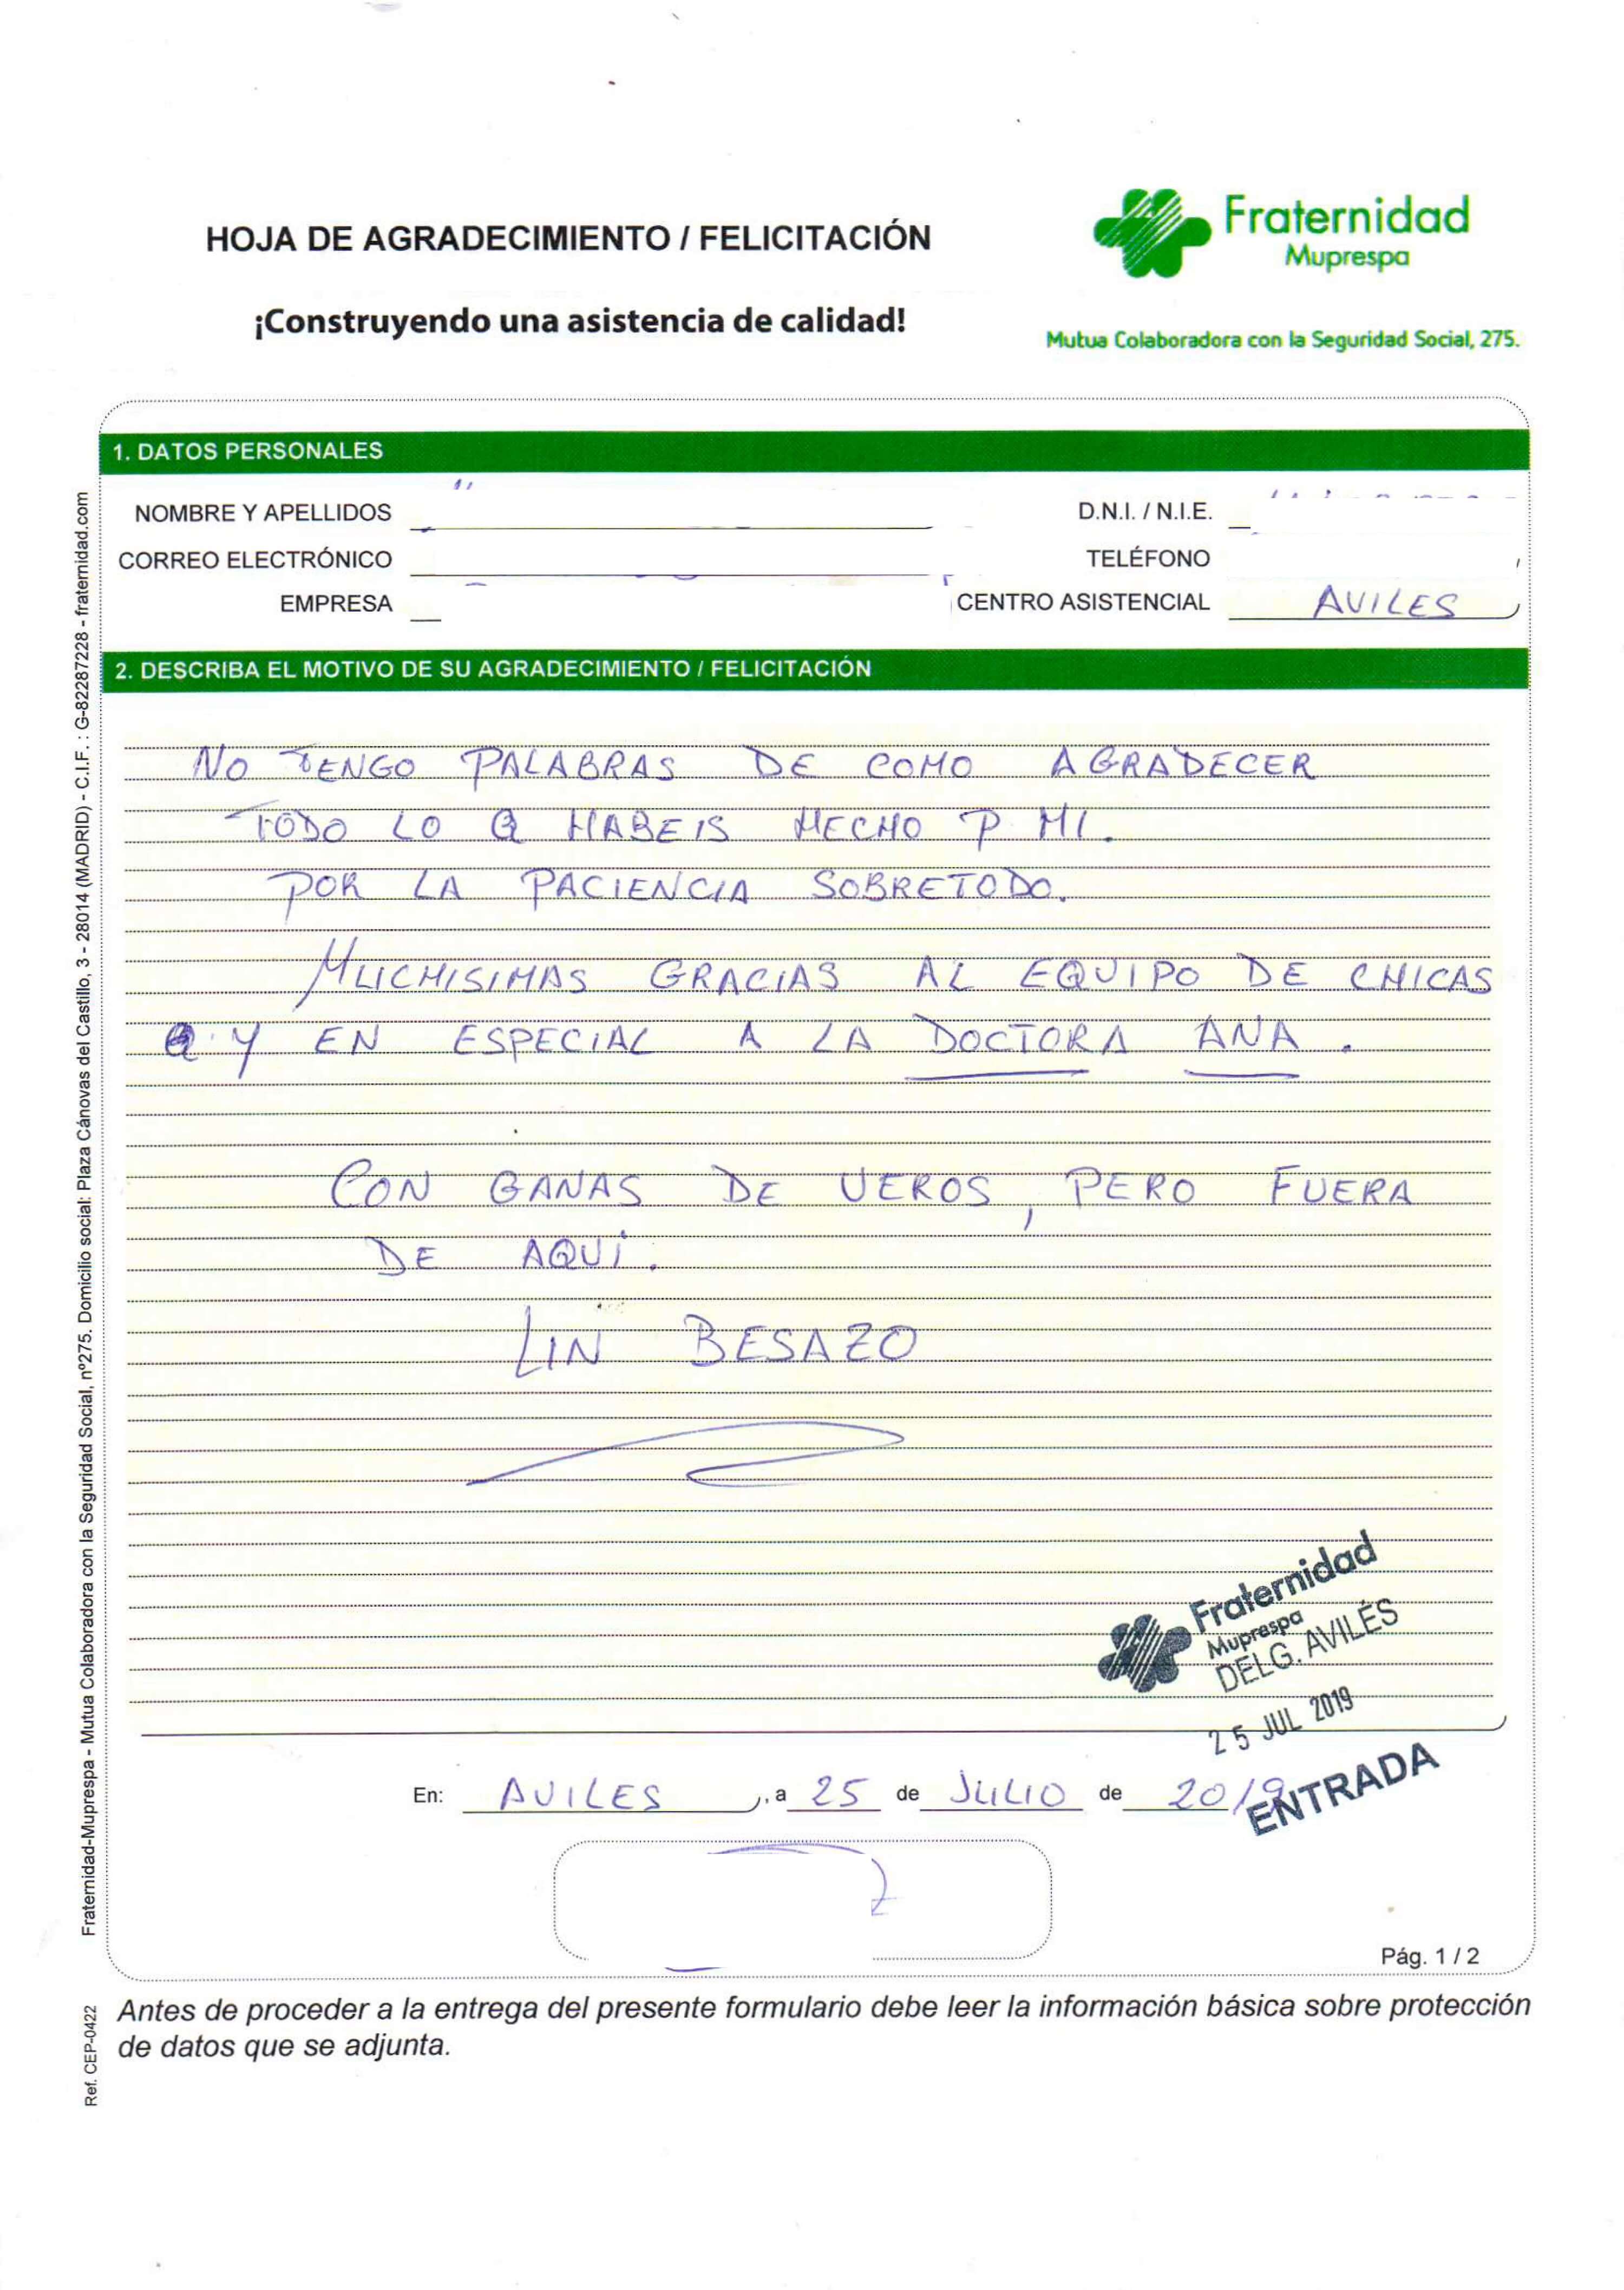 HOJA DE AGRADECIMIENTO / FELICITACIÓN
¡Construyendo una asistencia de calidad!
Fraternidad
Muprespa
Mutua Colaboradora con la Seguridad Social, 275.
1. DATOS PERSONALES
NOMBRE Y APELLIDOS
D.N.I. / N.I.E.
CORREO ELECTRÓNICO
TELÉFONO
EMPRESA
CENTRO ASISTENCIAL AVILES
2. DESCRIBA EL MOTIVO DE SU AGRADECIMIENTO / FELICITACIÓN
NO TENGO PALABRAS DE COMO AGRADECER
TODO LO Q HABEIS HECHO P MI.
POR LA PACIENCIA SOBRETODO.
MUCHISIMAS GRACIAS AL EQUIPO DE CHICAS
Y EN ESPECIAL A LA DOCTORA ANA.
CON GANAS DE VEROS, PERO FUERA
DE AQUÍ.
UN BESAZO
Fraternidad
Muprespa
DELG. AVILÉS
25 JUL 2019
ENTRADA
En: AVILES, a 25 de JULIO de 2019
Pág. 1 / 2
Antes de proceder a la entrega del presente formulario debe leer la información básica sobre protección
de datos que se adjunta.
Fraternidad-Muprespa - Mutua Colaboradora con la Seguridad Social, nº275. Domicilio social: Plaza Cánovas del Castillo, 3 - 28014 (MADRID) - C.I.F. : G-82287228 - fraternidad.com
Ref. CEP-0422